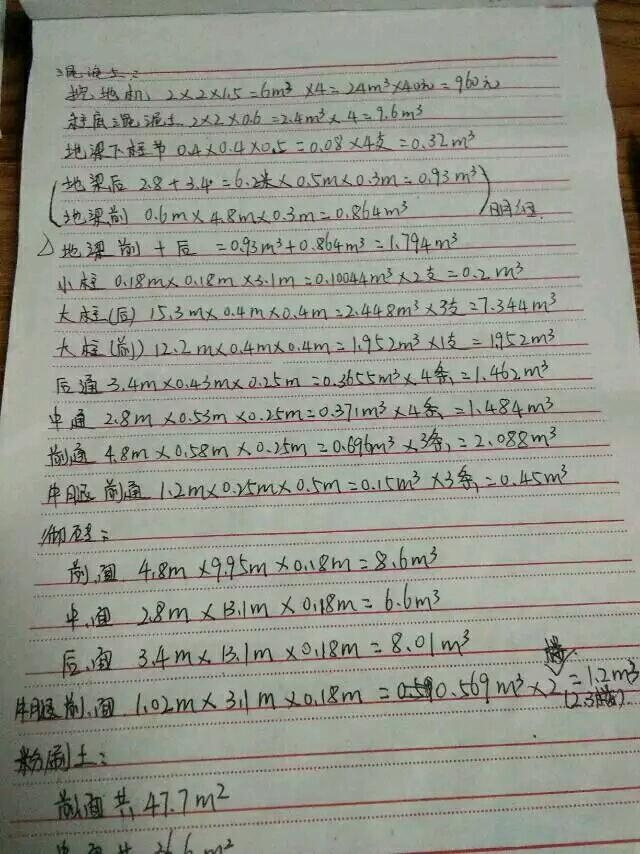 混泥土:
挖地机 2×2×1.5=6m³ ×4=24m³×40元=960元
柱底混泥土 2×2×0.6=2.4m³×4=9.6m³
地梁下柱节 0.4×0.4×0.5=0.08×4支=0.32m³
(地梁后 2.8+3.4=6.2米×0.5m×0.3m=0.93m³)
(地梁前 0.6m×4.8m×0.3m=0.864m³)
△地梁前+后 =0.93m³+0.864m³=1.794m³
小柱 0.18m×0.18m×3.1m=0.10044m³×2支=0.2m³
大柱(后) 15.3m×0.4m×0.4m=2.448m³×3支=7.344m³
大柱(前) 12.2m×0.4m×0.4m=1.952m³×1支=1952m³
后通 3.4m×0.43m×0.25m=0.3655m³×4条=1.462m³
中通 2.8m×0.53m×0.25m=0.371m³×4条=1.484m³
前通 4.8m×0.58m×0.25m=0.696m³×3条=2.088m³
牛腿前通 1.2m×0.25m×0.5m=0.15m³×3条=0.45m³
砌砖:
前面 4.8m×9.95m×0.18m=8.6m³
中面 2.8m×13.1m×0.18m=6.6m³
后面 3.4m×13.1m×0.18m=8.01m³
牛腿前面 1.02m×3.1m×0.18m=0.569m³×2楼=1.2m³
(2.3楼)
粉刷土:
前面共 47.7m²
中面共 36.6m²